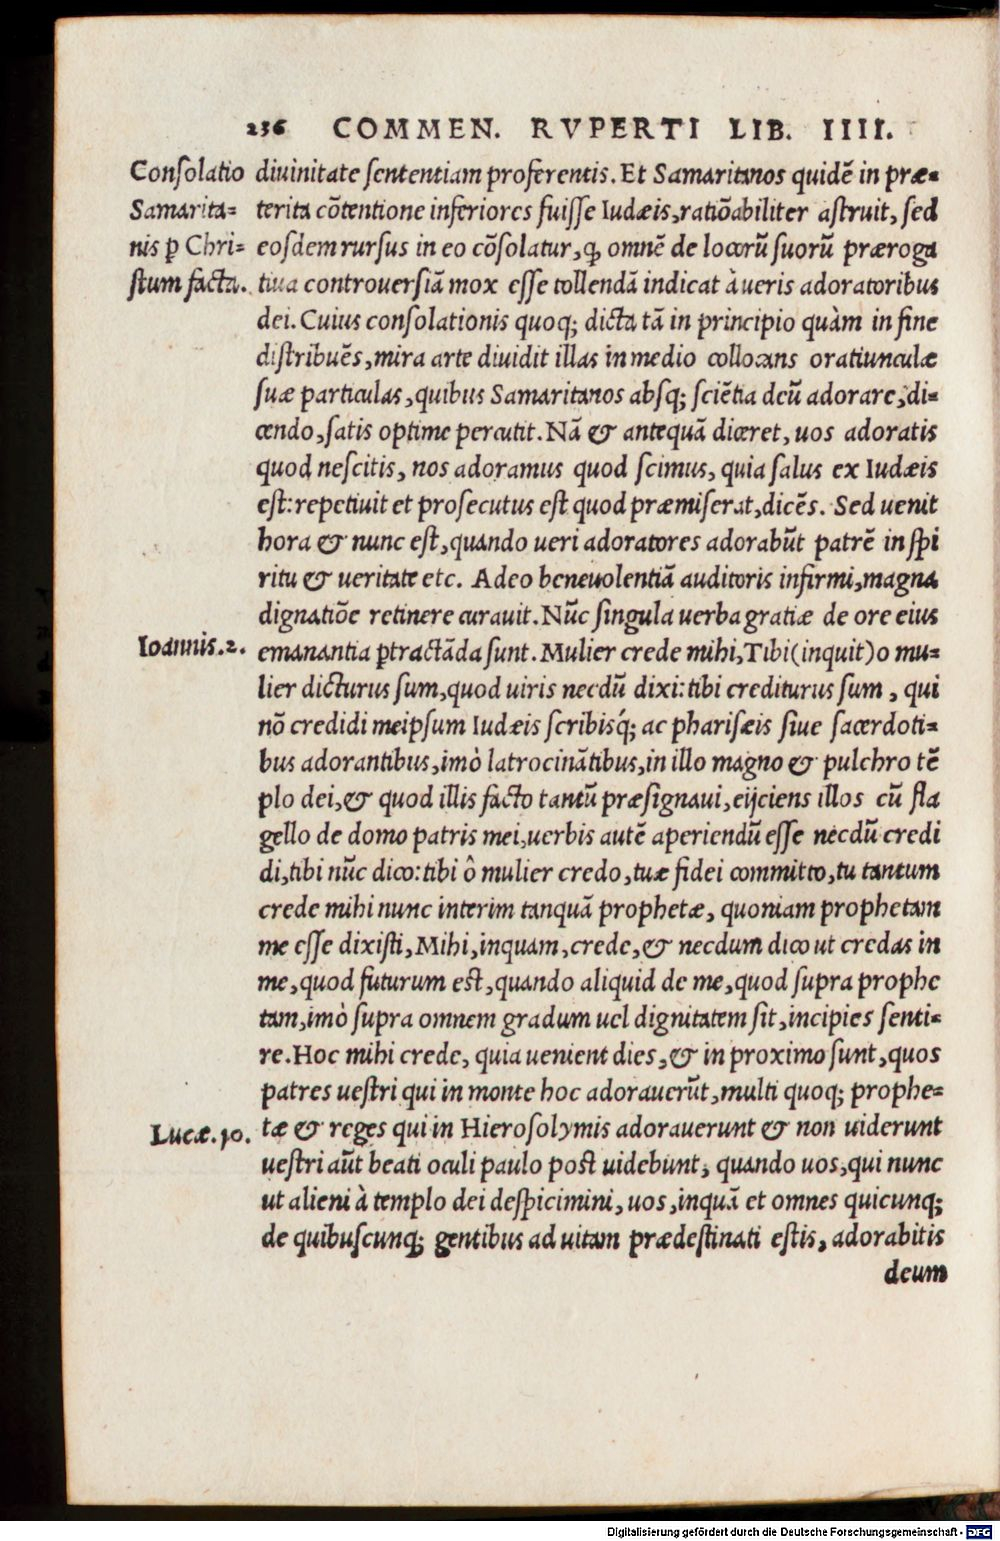 236 COMMEN. RVPERTI LIB. IIII.
Conſolatio
Samarita=
nis ꝑ Chri=
ſtum facta.
diuinitate ſententiam proferentis. Et Samaritanos quidẽ in præ=
terita cõtentione inferiores fuiſſe Iudæis, ratiõabiliter aſtruit, ſed
eoſdem rurſus in eo cõſolatur, ꝙ omnẽ de locorũ ſuorũ præroga
tiua controuerſiã mox eſſe tollendã indicat à ueris adoratoribus
dei. Cuius conſolationis quoq; dicta tã in principio quàm in fine
diſtribuẽs, mira arte diuidit illas in medio collocans oratiunculæ
ſuæ particulas, quibus Samaritanos abſq; ſciẽtia deũ adorare, di=
cendo, ſatis optime percutit. Nã & antequã diceret, uos adoratis
quod neſcitis, nos adoramus quod ſcimus, quia ſalus ex Iudæis
eſt: repetiuit et proſecutus eſt quod præmiſerat, dicẽs. Sed uenit
hora & nunc eſt, quando ueri adoratores adorabũt patrẽ in ſpi
ritu & ueritate etc. Adeo beneuolentiã auditoris infirmi, magna
dignatiõe retinere curauit. Nũc ſingula uerba gratiæ de ore eius
Ioannis. 2.
emanantia ꝑtractãda ſunt. Mulier crede mihi, Tibi (inquit) o mu=
lier dicturus ſum, quod uiris necdũ dixi: tibi crediturus ſum, qui
nõ credidi meipſum Iudæis ſcribisq́; ac phariſæis ſiue ſacerdoti=
bus adorantibus, imò latrocinãtibus, in illo magno & pulchro tẽ
plo dei, & quod illis facto tantũ præſignaui, eijciens illos cũ fla
gello de domo patris mei, uerbis autẽ aperiendũ eſſe necdũ credi
di, tibi nũc dico: tibi ô mulier credo, tuæ fidei committo, tu tantum
crede mihi nunc interim tanquã prophetæ, quoniam prophetam
me eſſe dixiſti, Mihi, inquam, crede, & necdum dico ut credas in
me, quod futurum eſt, quando aliquid de me, quod ſupra prophe
tam, imò ſupra omnem gradum uel dignitatem ſit, incipies ſenti=
re. Hoc mihi crede, quia uenient dies, & in proximo ſunt, quos
patres ueſtri qui in monte hoc adorauerũt, multi quoq; prophe=
Lucæ. 10.
tæ & reges qui in Hieroſolymis adorauerunt & non uiderunt
ueſtri aũt beati oculi paulo poſt uidebunt, quando uos, qui nunc
ut alieni à templo dei deſpicimini, uos, inquã et omnes quicunq;
de quibuſcunq; gentibus ad uitam prædeſtinati eſtis, adorabitis
deum
Digitalisierung gefördert durch die Deutsche Forschungsgemeinschaft - DFG